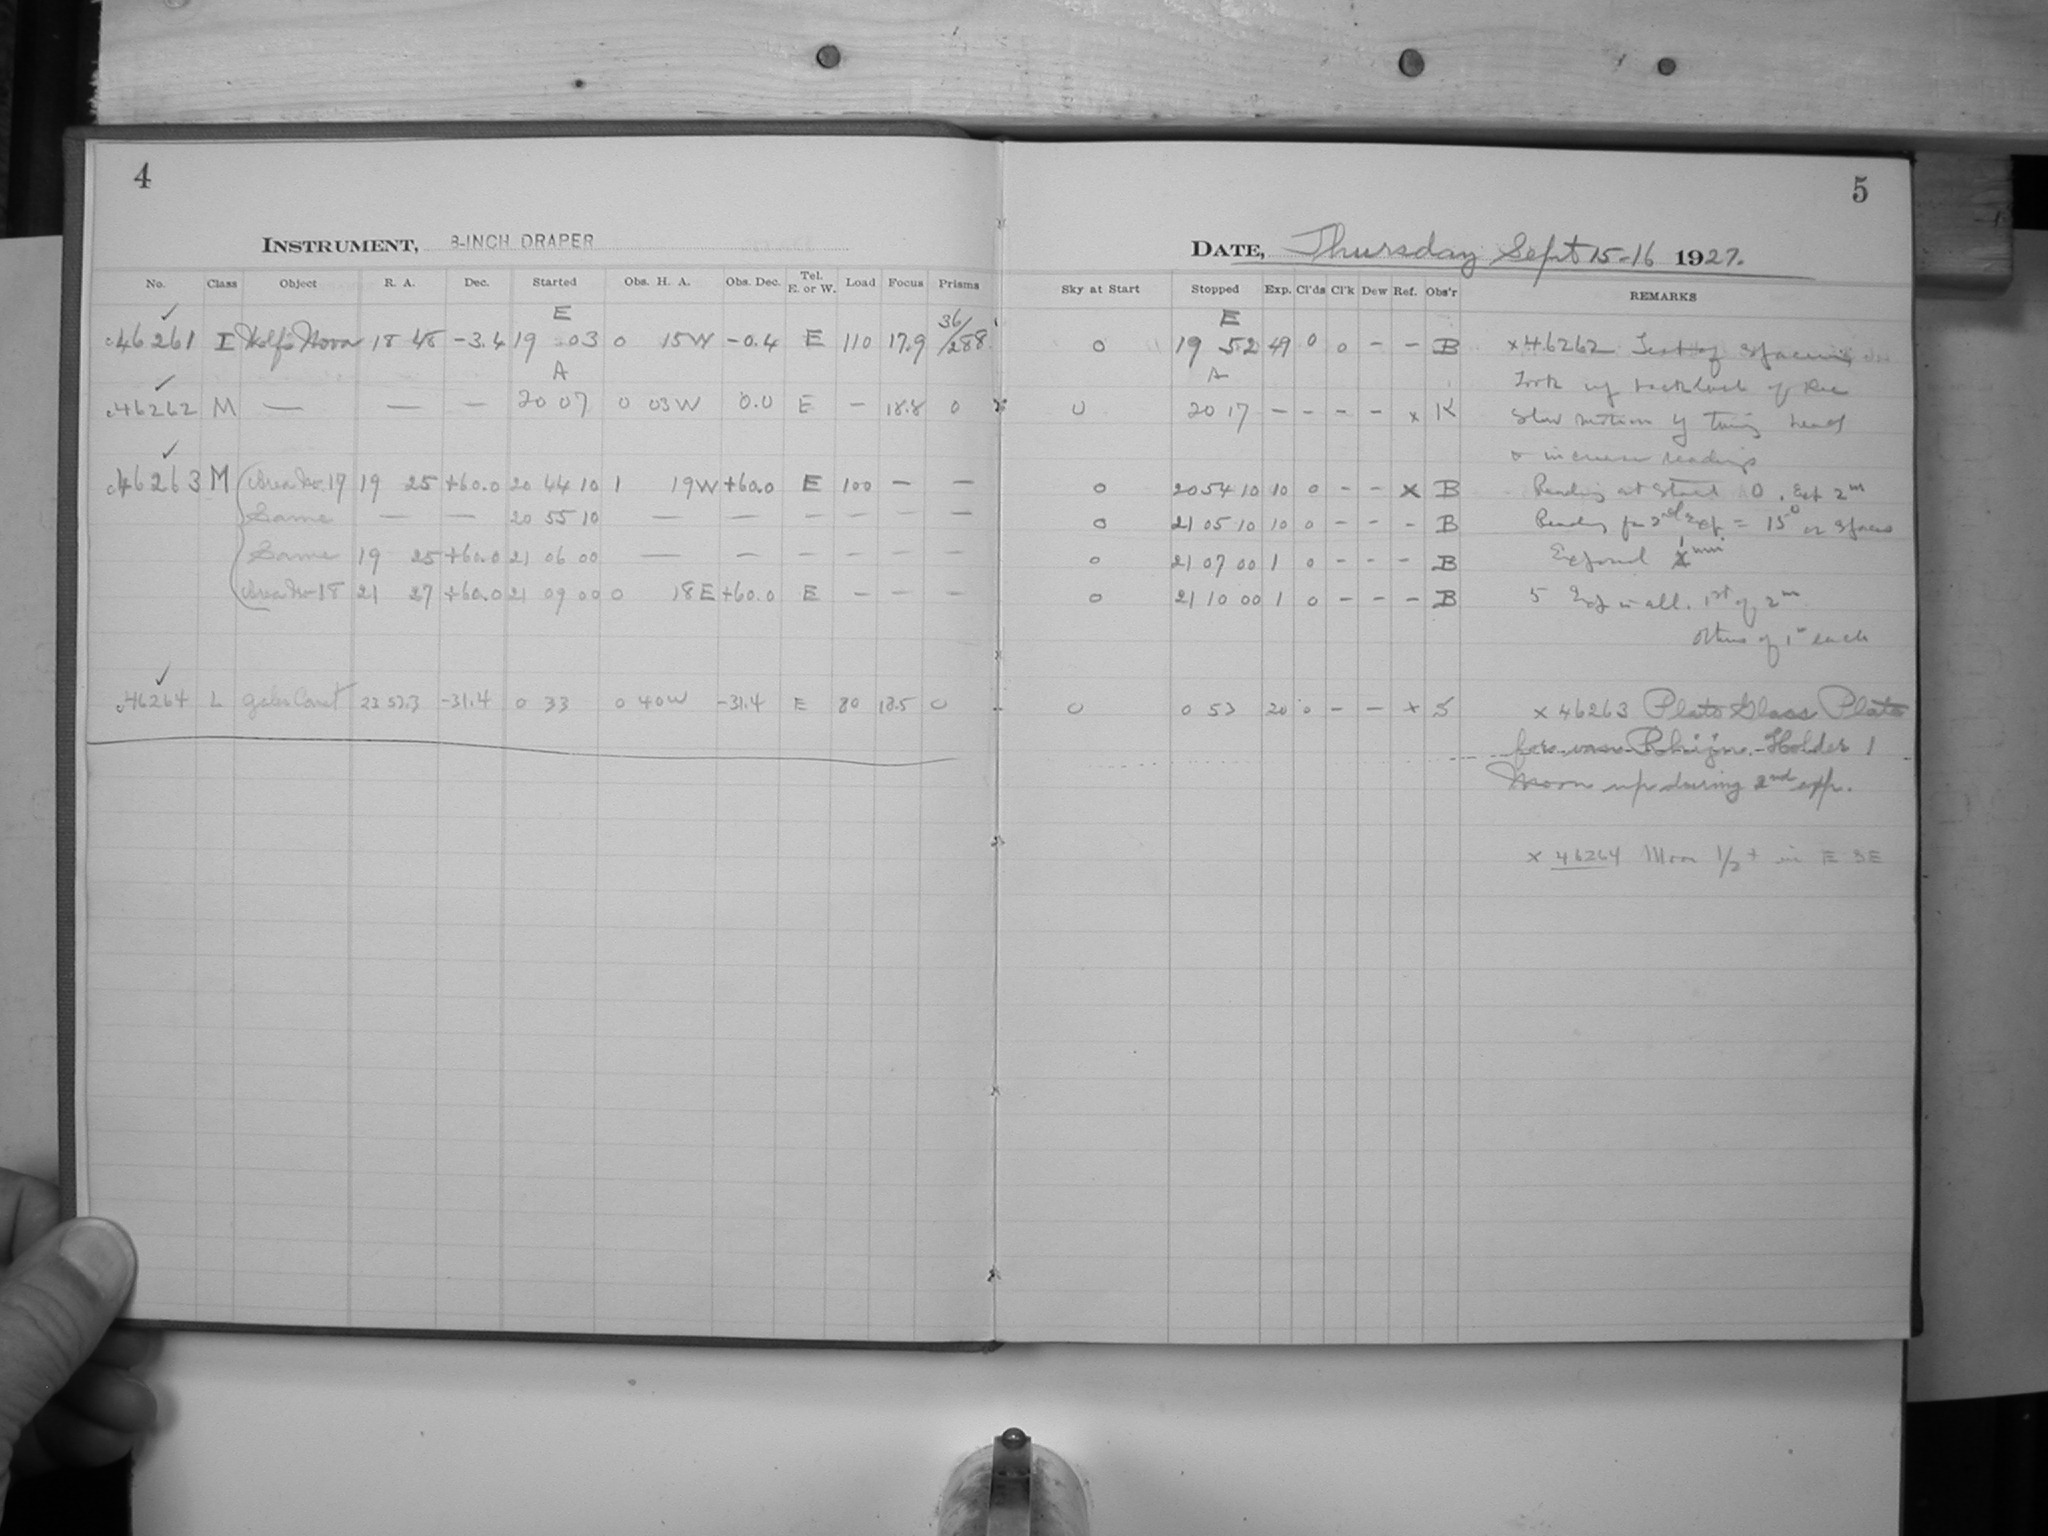 4
INSTRUMENT, 8-INCH DRAPER
No. Class Object R. A. Dec. Started Obs. H. A. Obs. Dec. Tel. E. or W. Load Focus Prisms
E
46261 I Wolf's Nova 18 48 -3.4 19 03 0 15W -0.4 E 110 17.9 36/288
A
46262 M — — — 20 07 0 03W 0.0 E — 18.8 0
46263 M Area No. 17 19 25 +60.0 20 44 10 1 19W +60.0 E 100 — —
Same — — 20 55 10 — — — — — —
Same 19 25 +60.0 21 06 00 — — — — — —
Area No 18 21 27 +60.0 21 09 00 0 18E +60.0 E — — —
46264 L 23 53.3 -31.4 0 33 0 40W -31.4 E 80 18.5 0
5
DATE, Thursday Sept 15-16 1927.
Sky at Start Stopped Exp. Cl'ds Cl'k Dew Ref. Obs'r REMARKS
E
0 19 52 49 0 0 - - B x46262 Test of spacing
A
Took up backlash of Dec
0 20 17 - - - - x K slow motion by turning head
to increase readings
0 20 54 10 10 0 - - x B Reading at start 0. Exp 2m
0 21 05 10 10 0 - - - B Reading for 2nd Exp = 15
0 21 07 00 1 0 - - - B Exposed 1 min
0 21 10 00 1 0 - - - B 5 Exp in all. 1st of 2m
others of 1m each
0 0 53 20 0 - - x S x 46263 Plate Glass Plate
for van Rhijn. Holder 1
Moon up during 2nd exp.
x 46264 Moon 1/2 + in E SE